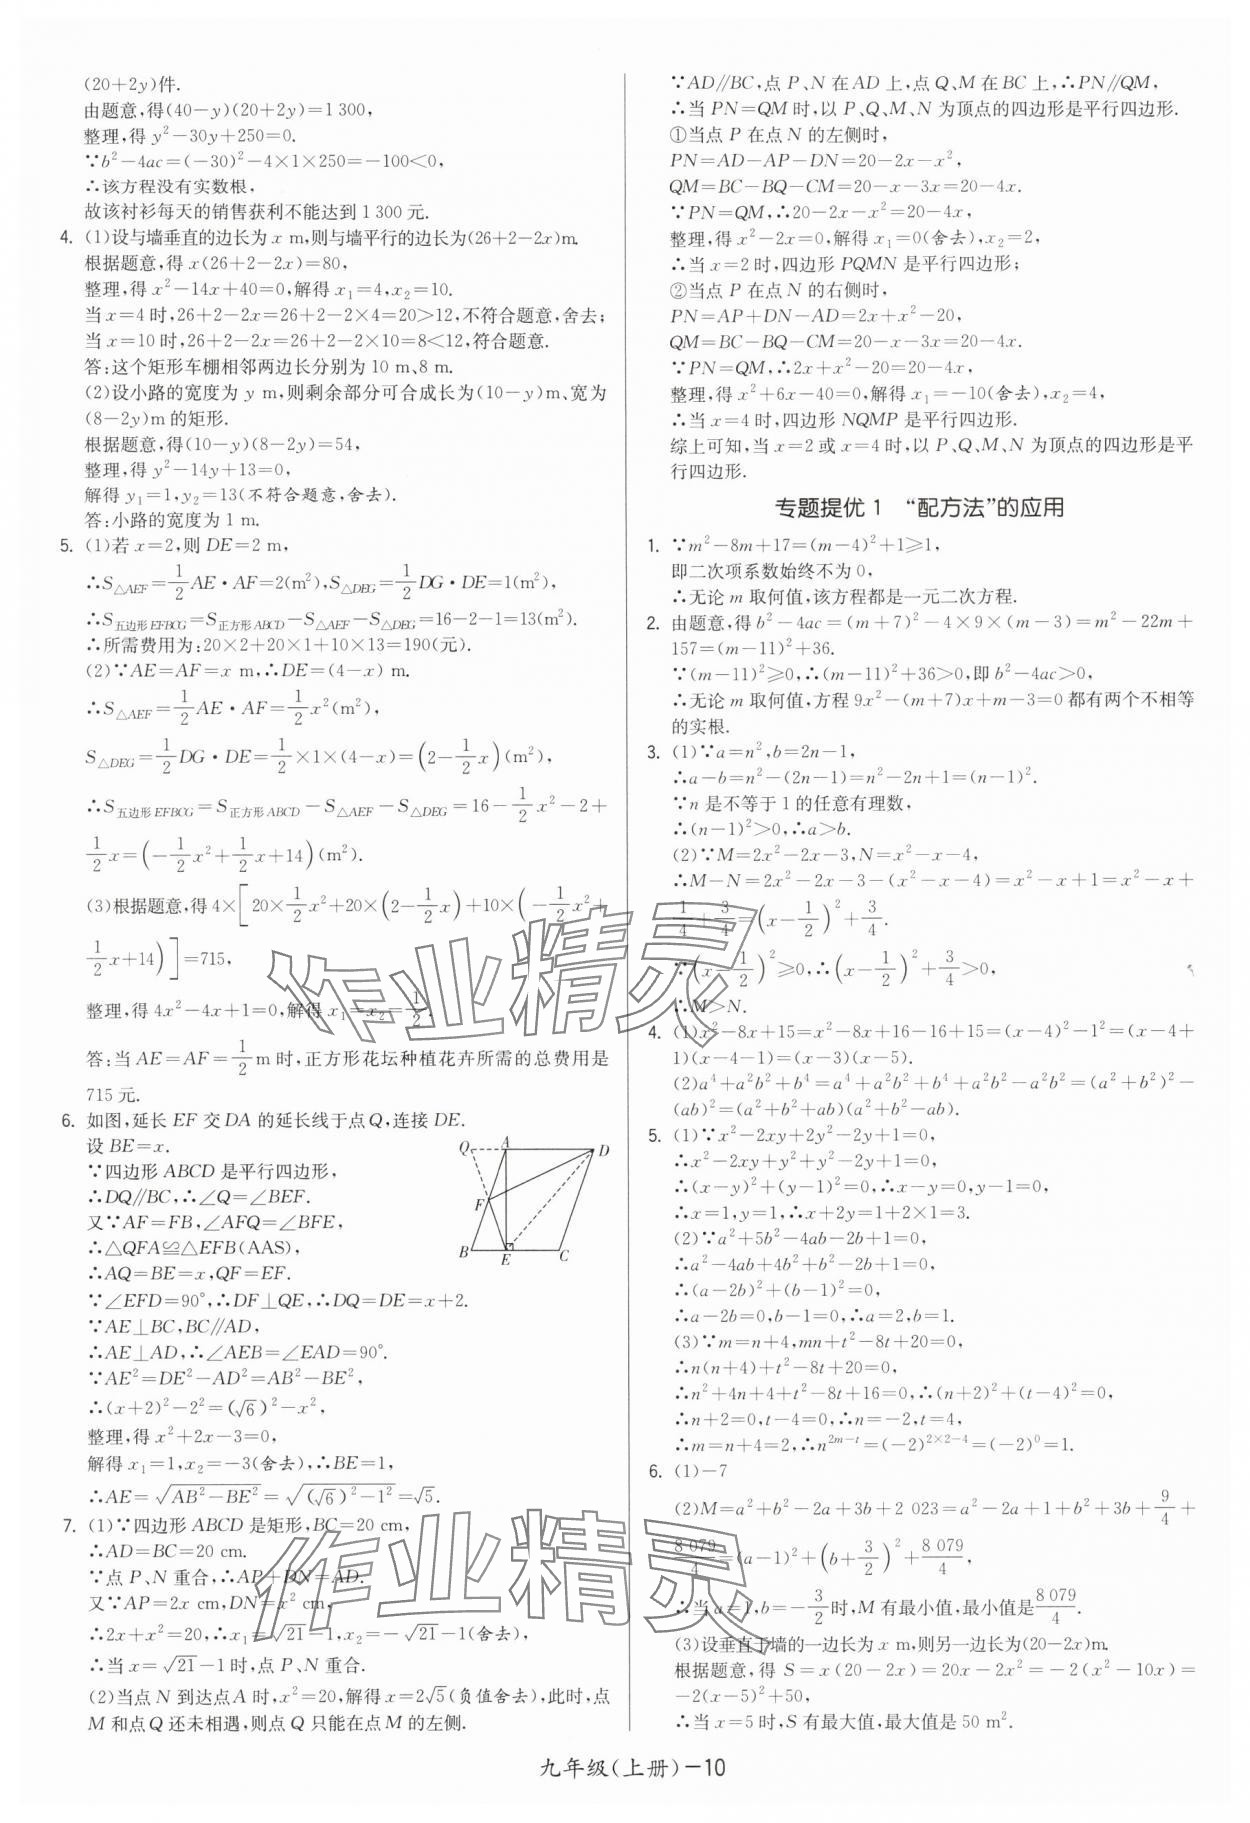 (20+2y)件.
由题意,得(40-y)(20+2y)=1 300,
整理,得 y²-30y+250=0.
∵b²-4ac=(-30)²-4×1×250=-100<0,
∴该方程没有实数根,
故该衬衫每天的销售获利不能达到 1 300 元.
4. (1)设与墙垂直的边长为 x m,则与墙平行的边长为(26+2-2x)m.
根据题意,得 x(26+2-2x)=80,
整理,得 x²-14x+40=0,解得 x₁=4,x₂=10.
当 x=4 时,26+2-2x=26+2-2×4=20>12,不符合题意,舍去;
当 x=10 时,26+2-2x=26+2-2×10=8<12,符合题意.
答:这个矩形车棚相邻两边长分别为 10 m、8 m.
(2)设小路的宽度为 y m,则剩余部分可合成长为(10-y)m、宽为
(8-2y)m 的矩形.
根据题意,得(10-y)(8-2y)=54,
整理,得 y²-14y+13=0,
解得 y₁=1,y₂=13(不符合题意,舍去).
答:小路的宽度为 1 m.
5. (1)若 x=2,则 DE=2 m,
∴S△AEF=1/2 AE·AF=2(m²),S△DEG=1/2 DG·DE=1(m²).
∴S五边形EFBCG=S正方形ABCD-S△AEF-S△DEG=16-2-1=13(m²).
∴所需费用为:20×2+20×1+10×13=190(元).
(2)∵AE=AF=x m,∴DE=(4-x) m.
∴S△AEF=1/2 AE·AF=1/2 x²(m²),
S△DEG=1/2 DG·DE=1/2×1×(4-x)=(2-1/2 x)(m²),
∴S五边形EFBCG=S正方形ABCD-S△AEF-S△DEG=16-1/2 x²-2+
1/2 x=(-1/2 x²+1/2 x+14)(m²).
(3)根据题意,得 4×[20×1/2 x²+20×(2-1/2 x)+10×(-1/2 x²+
1/2 x+14)]=715,
整理,得 4x²-4x+1=0,解得 x₁=x₂=1/2.
答:当 AE=AF=1/2 m 时,正方形花坛种植花卉所需的总费用是
715 元.
6. 如图,延长 EF 交 DA 的延长线于点 Q,连接 DE.
设 BE=x.
∵四边形 ABCD 是平行四边形,
∴DQ∥BC,∴∠Q=∠BEF.
又∵AF=FB,∠AFQ=∠BFE,
∴△QFA≌△EFB(AAS),
∴AQ=BE=x,QF=EF.
∵∠EFD=90°,∴DF⊥QE,∴DQ=DE=x+2.
∵AE⊥BC,BC∥AD,
∴AE⊥AD,∴∠AEB=∠EAD=90°.
∵AE²=DE²-AD²=AB²-BE²,
∴(x+2)²-2²=(√6)²-x²,
整理,得 x²+2x-3=0,
解得 x₁=1,x₂=-3(舍去),∴BE=1,
∴AE=√(AB²-BE²)=√((√6)²-1²)=√5.
Q A D
F
B E C
7. (1)∵四边形 ABCD 是矩形,BC=20 cm,
∴AD=BC=20 cm.
∵点 P、N 重合,∴AP+DN=AD.
又∵AP=2x cm,DN=x² cm,
∴2x+x²=20,∴x₁=√21-1,x₂=-√21-1(舍去),
∴当 x=√21-1 时,点 P、N 重合.
(2)当点 N 到达点 A 时,x²=20,解得 x=2√5(负值舍去),此时,点
M 和点 Q 还未相遇,则点 Q 只能在点 M 的左侧.
∵AD∥BC,点 P、N 在 AD 上,点 Q、M 在 BC 上,∴PN∥QM,
∴当 PN=QM 时,以 P、Q、M、N 为顶点的四边形是平行四边形.
①当点 P 在点 N 的左侧时,
PN=AD-AP-DN=20-2x-x²,
QM=BC-BQ-CM=20-x-3x=20-4x.
∵PN=QM,∴20-2x-x²=20-4x,
整理,得 x²-2x=0,解得 x₁=0(舍去),x₂=2,
∴当 x=2 时,四边形 PQMN 是平行四边形;
②当点 P 在点 N 的右侧时,
PN=AP+DN-AD=2x+x²-20,
QM=BC-BQ-CM=20-x-3x=20-4x.
∵PN=QM,∴2x+x²-20=20-4x,
整理,得 x²+6x-40=0,解得 x₁=-10(舍去),x₂=4,
∴当 x=4 时,四边形 NQMP 是平行四边形.
综上可知,当 x=2 或 x=4 时,以 P、Q、M、N 为顶点的四边形是平
行四边形.
专题提优 1 “配方法”的应用
1. ∵m²-8m+17=(m-4)²+1≥1,
即二次项系数始终不为 0,
∴无论 m 取何值,该方程都是一元二次方程.
2. 由题意,得 b²-4ac=(m+7)²-4×9×(m-3)=m²-22m+
157=(m-11)²+36.
∵(m-11)²≥0,∴(m-11)²+36>0,即 b²-4ac>0,
∴无论 m 取何值,方程 9x²-(m+7)x+m-3=0 都有两个不相等
的实根.
3. (1)∵a=n²,b=2n-1,
∴a-b=n²-(2n-1)=n²-2n+1=(n-1)².
∵n 是不等于 1 的任意有理数,
∴(n-1)²>0,∴a>b.
(2)∵M=2x²-2x-3,N=x²-x-4,
∴M-N=2x²-2x-3-(x²-x-4)=x²-x+1=x²-x+
1/4+3/4=(x-1/2)²+3/4.
∵(x-1/2)²≥0,∴(x-1/2)²+3/4>0,
∴M>N.
4. (1)x²-8x+15=x²-8x+16-16+15=(x-4)²-1²=(x-4+
1)(x-4-1)=(x-3)(x-5).
(2)a⁴+a²b²+b⁴=a⁴+a²b²+b⁴+a²b²-a²b²=(a²+b²)²-
(ab)²=(a²+b²+ab)(a²+b²-ab).
5. (1)∵x²-2xy+2y²-2y+1=0,
∴x²-2xy+y²+y²-2y+1=0,
∴(x-y)²+(y-1)²=0,∴x-y=0,y-1=0,
∴x=1,y=1,∴x+2y=1+2×1=3.
(2)∵a²+5b²-4ab-2b+1=0,
∴a²-4ab+4b²+b²-2b+1=0,
∴(a-2b)²+(b-1)²=0,
∴a-2b=0,b-1=0,∴a=2,b=1.
(3)∵m=n+4,mn+t²-8t+20=0,
∴n(n+4)+t²-8t+20=0,
∴n²+4n+4+t²-8t+16=0,∴(n+2)²+(t-4)²=0,
∴n+2=0,t-4=0,∴n=-2,t=4,
∴m=n+4=2,∴n²ᵐ⁻ᵗ=(-2)²ˣ²⁻⁴=(-2)⁰=1.
6. (1)-7
(2)M=a²+b²-2a+3b+2 023=a²-2a+1+b²+3b+9/4+
8 079/4=(a-1)²+(b+3/2)²+8 079/4,
∴当 a=1,b=-3/2时,M 有最小值,最小值是8 079/4.
(3)设垂直于墙的一边长为 x m,则另一边长为(20-2x)m.
根据题意,得 S=x(20-2x)=20x-2x²=-2(x²-10x)=
-2(x-5)²+50,
∴当 x=5 时,S 有最大值,最大值是 50 m².
九年级(上册)-10
作业精灵
作业精灵